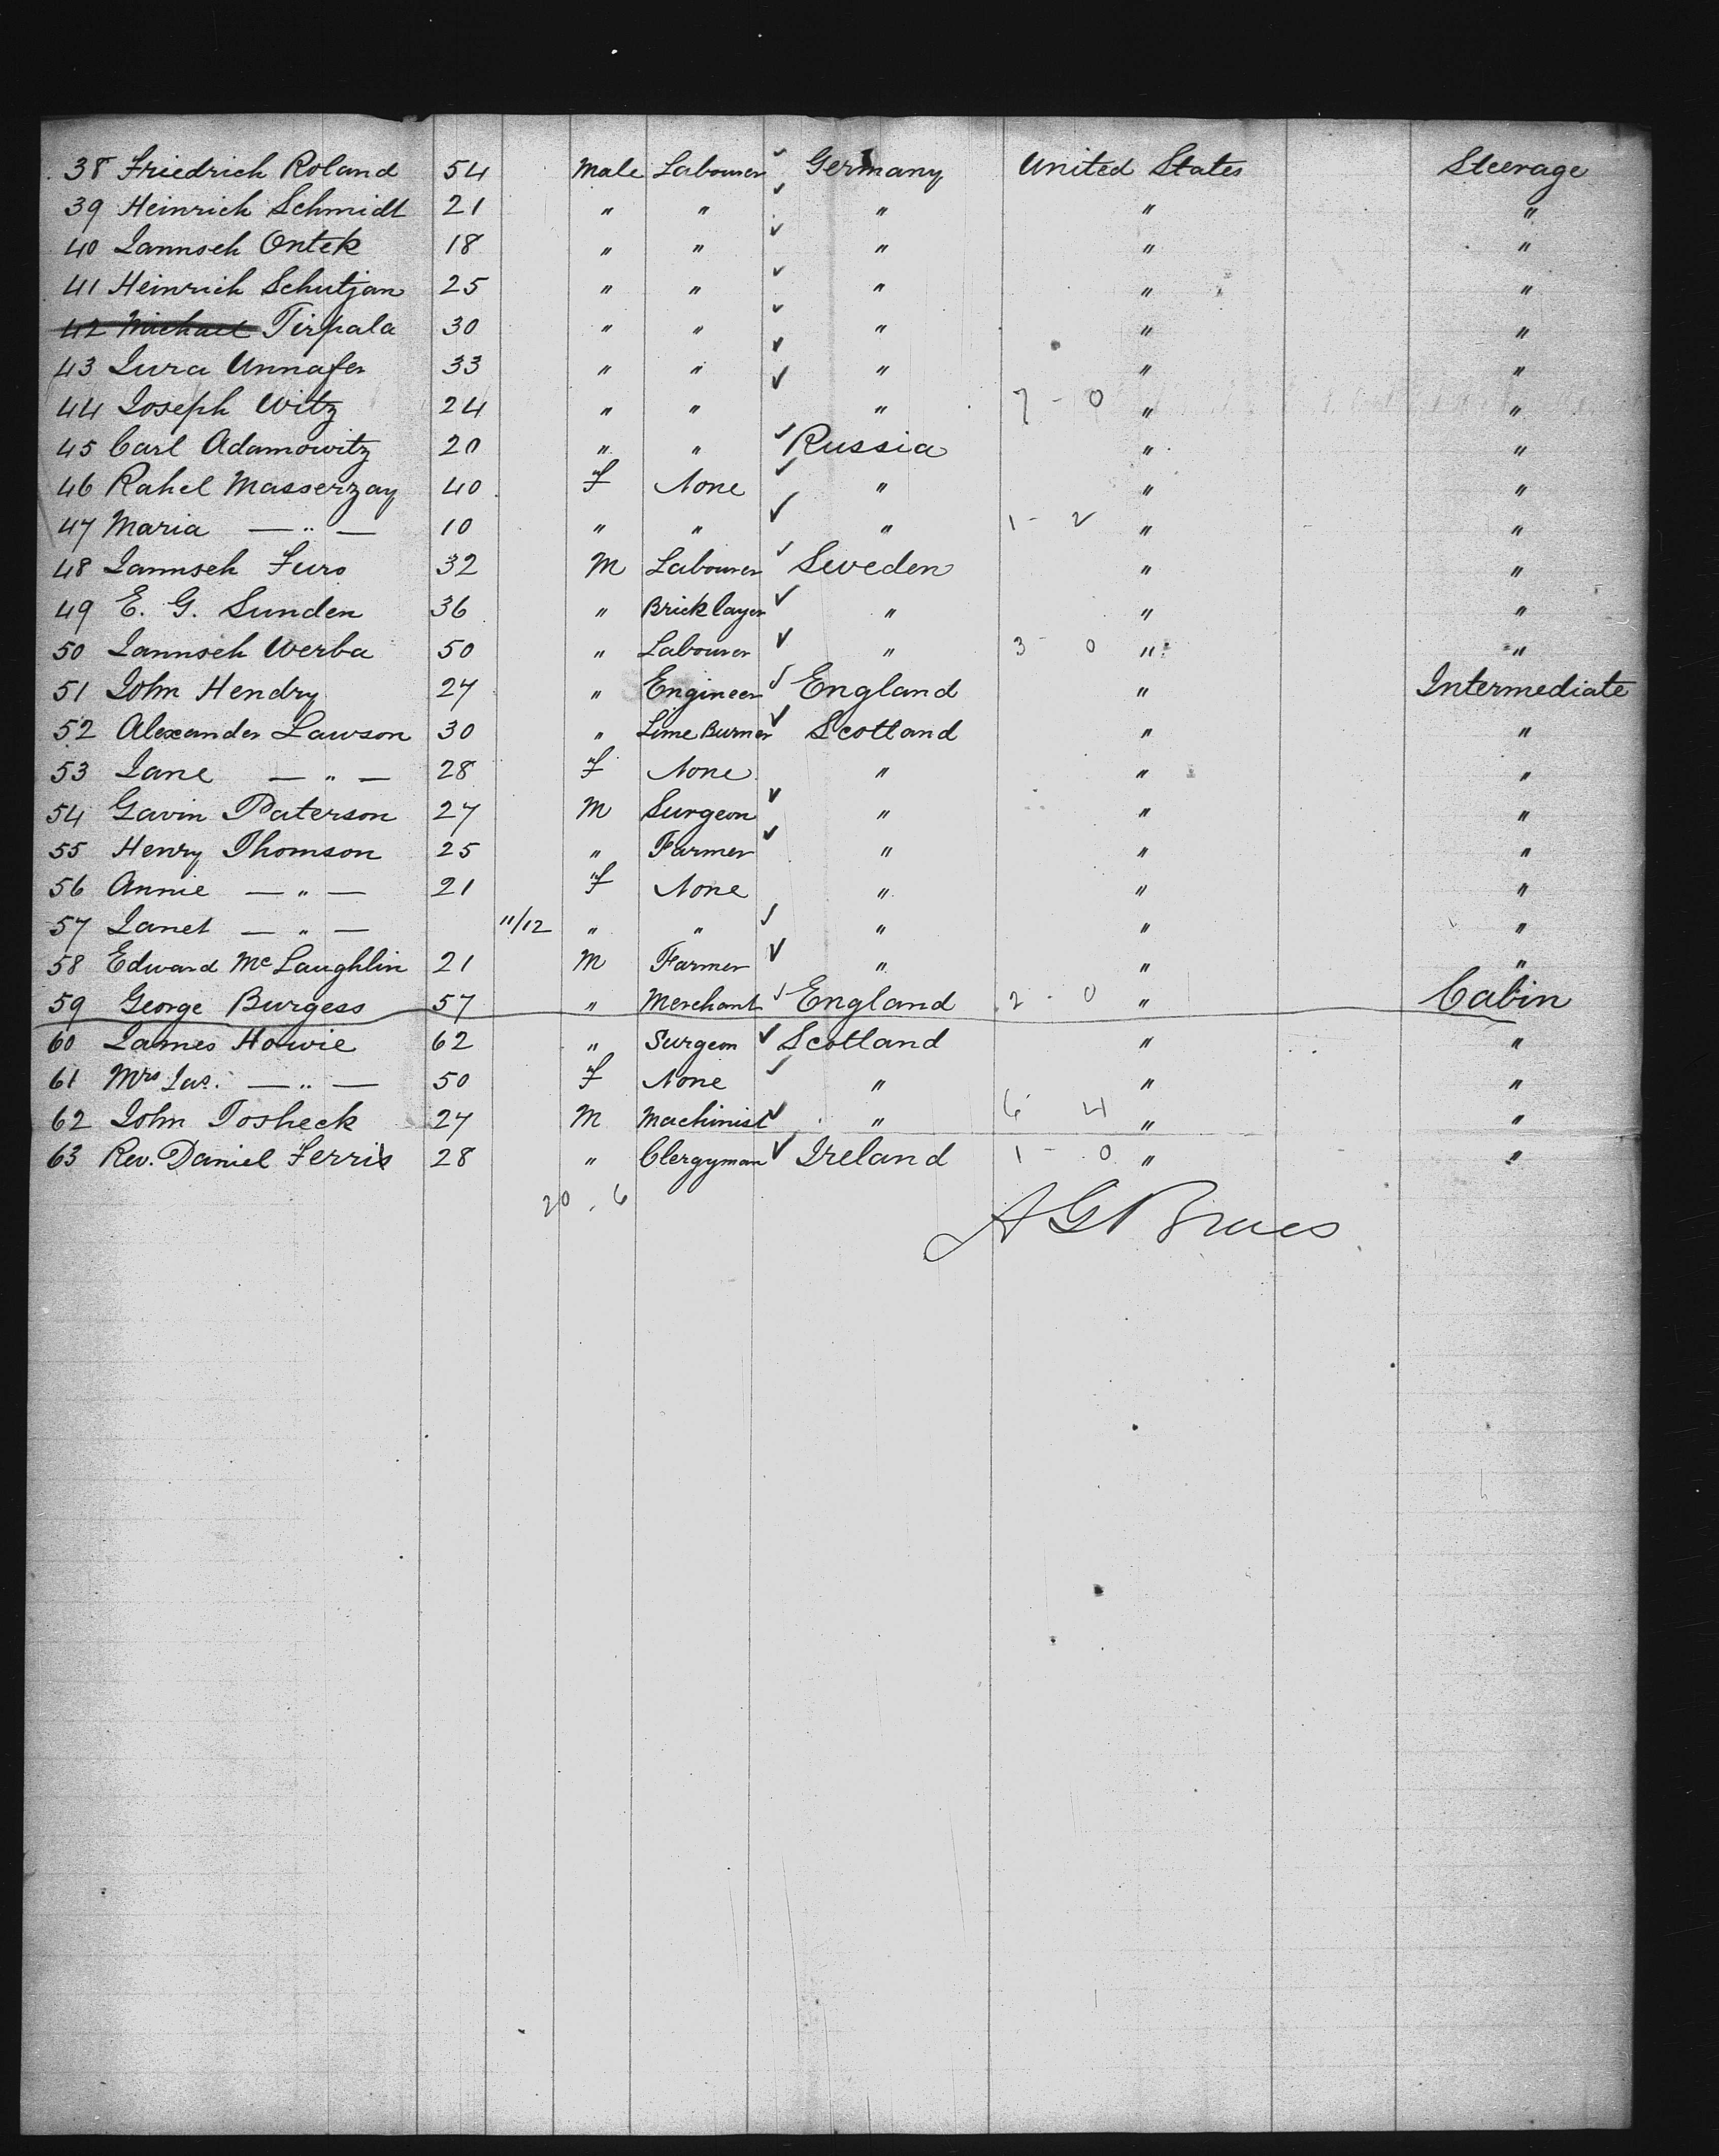 38 Friedrich Roland 54 Male Labourer Germany United States Steerage
39 Heinrich Schmidt 21 " " " " "
40 Jannsch Ontek 18 " " " " "
41 Heinrich Schutjan 25 " " " " "
42 Michael Tirpala 30 " " " " "
43 Jura Unnafer 33 " " " " "
44 Joseph Witz 24 " " " 7 - 0 " "
45 Carl Adamowitz 20 " " Russia " "
46 Rahel Masserzay 40 f None " " "
47 Maria — " — 10 " " " 1 - 2 " "
48 Jannsch Furo 32 M Labourer Sweden " "
49 E. G. Sunden 36 " Bricklayer " " "
50 Jannsch Werba 50 " Labourer " 3 - 0 " "
51 John Hendry 27 " Engineer England " Intermediate
52 Alexander Lawson 30 " Lime Burner Scotland " "
53 Jane — " — 28 f None " " "
54 Gavin Paterson 27 M Surgeon " " "
55 Henry Thomson 25 " Farmer " " "
56 Annie — " — 21 f None " " "
57 Janet — " — 11/12 " " " " "
58 Edward McLaughlin 21 M Farmer " " "
59 George Burgess 57 " Merchant England 2 - 0 " Cabin
60 James Howie 62 " Surgeon Scotland " "
61 Mrs Jas. — " — 50 f None " " "
62 John Tosheck 27 M Machinist " 6 4 " "
63 Rev. Daniel Ferris 28 " Clergyman Ireland 1 - 0 " "
20 . 6
A G Braes